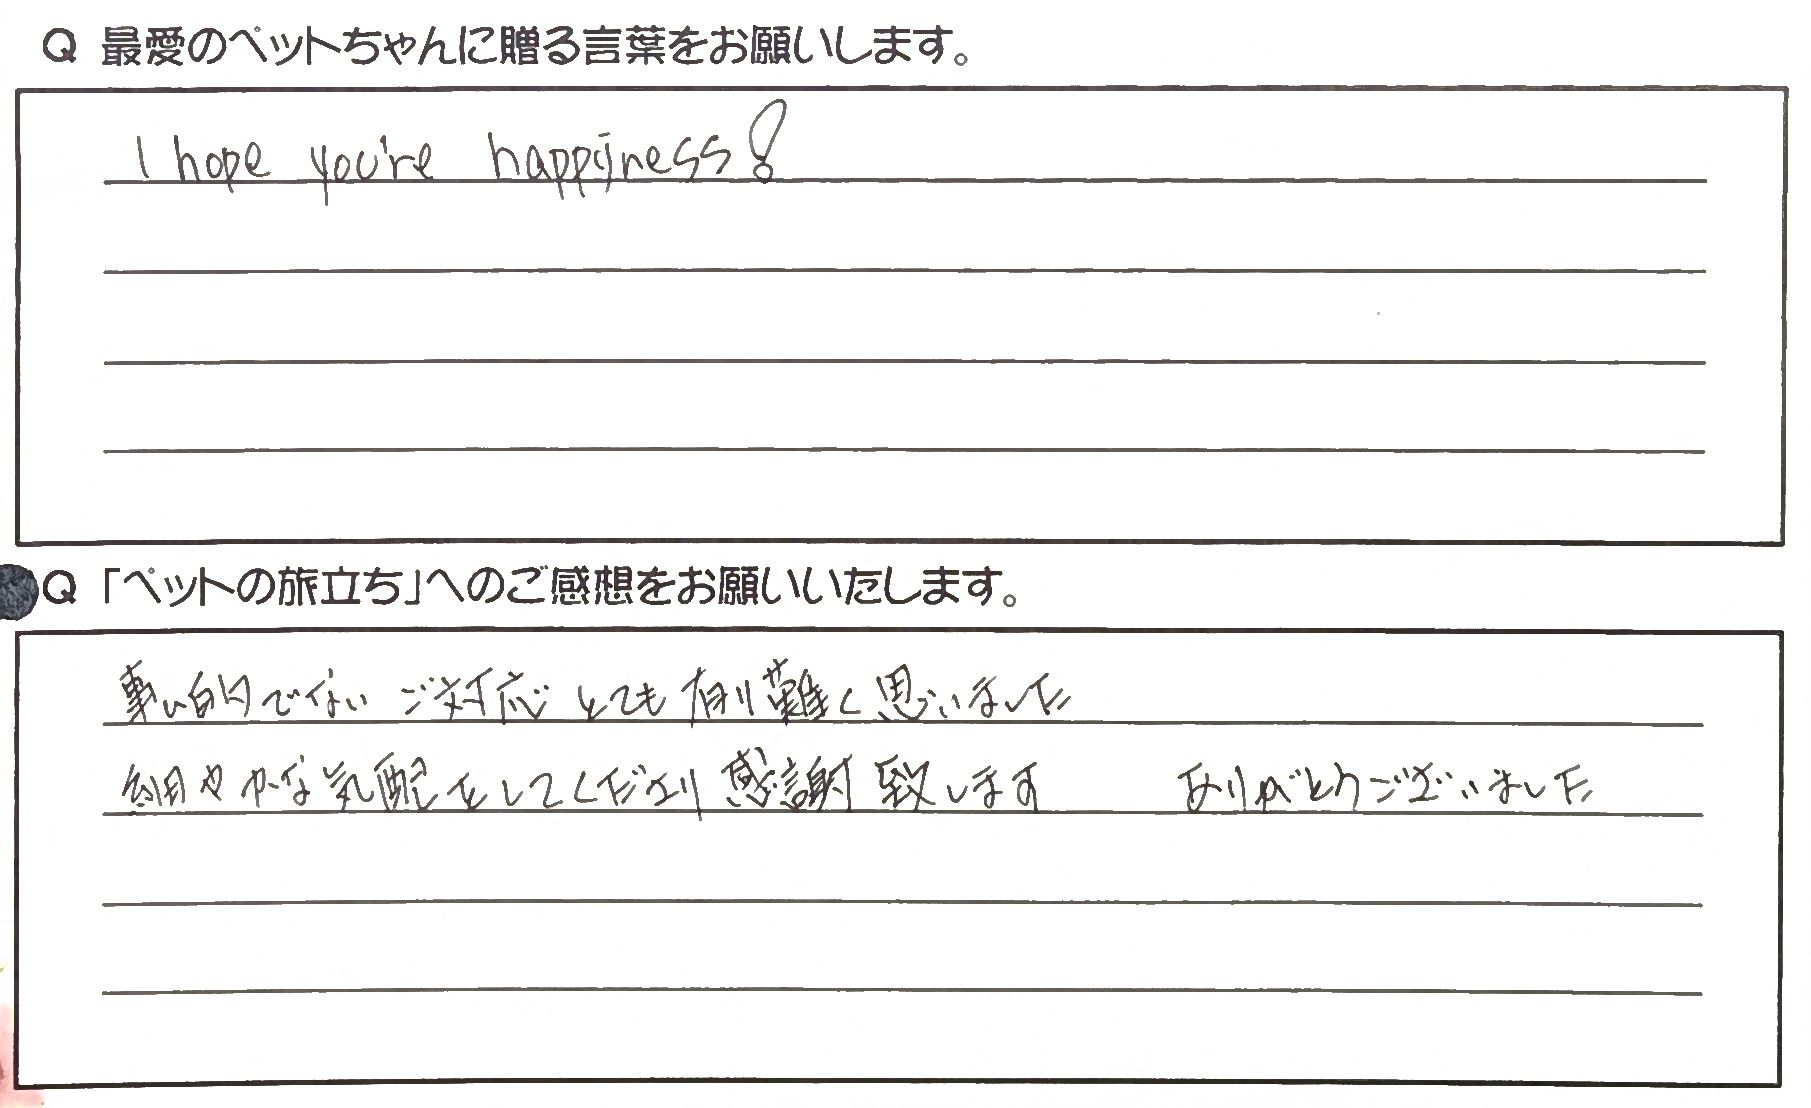 Q 最愛のペットちゃんに贈る言葉をお願いします。
I hope you're happiness!
Q 「ペットの旅立ち」へのご感想をお願いいたします。
事ム的でない ご対応 とても 有り難く思いました
細やかな気配をしてくださり 感謝致します ありがとうございました